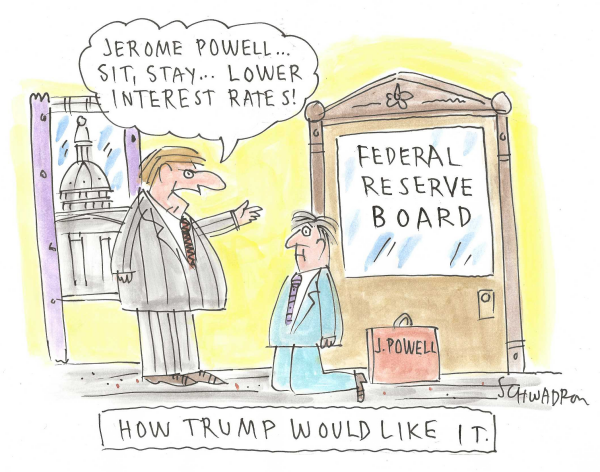 JEROME POWELL...
SIT, STAY... LOWER
INTEREST RATES!
FEDERAL
RESERVE
BOARD
J. POWELL
SCHWADRON
HOW TRUMP WOULD LIKE IT.